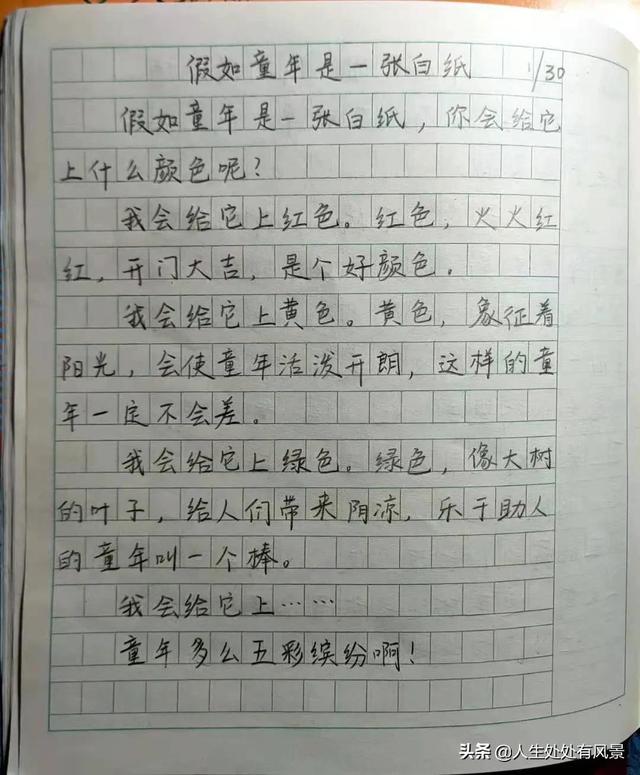 假如童年是一张白纸 1/30
假如童年是一张白纸，你会给它
上什么颜色呢？
我会给它上红色。红色，火火红
红，开门大吉，是个好颜色。
我会给它上黄色。黄色，象征着
阳光，会使童年活泼开朗，这样的童
年一定不会差。
我会给它上绿色。绿色，像大树
的叶子，给人们带来阴凉，乐于助人
的童年叫一个棒。
我会给它上……
童年多么五彩缤纷啊！
头条 @人生处处有风景